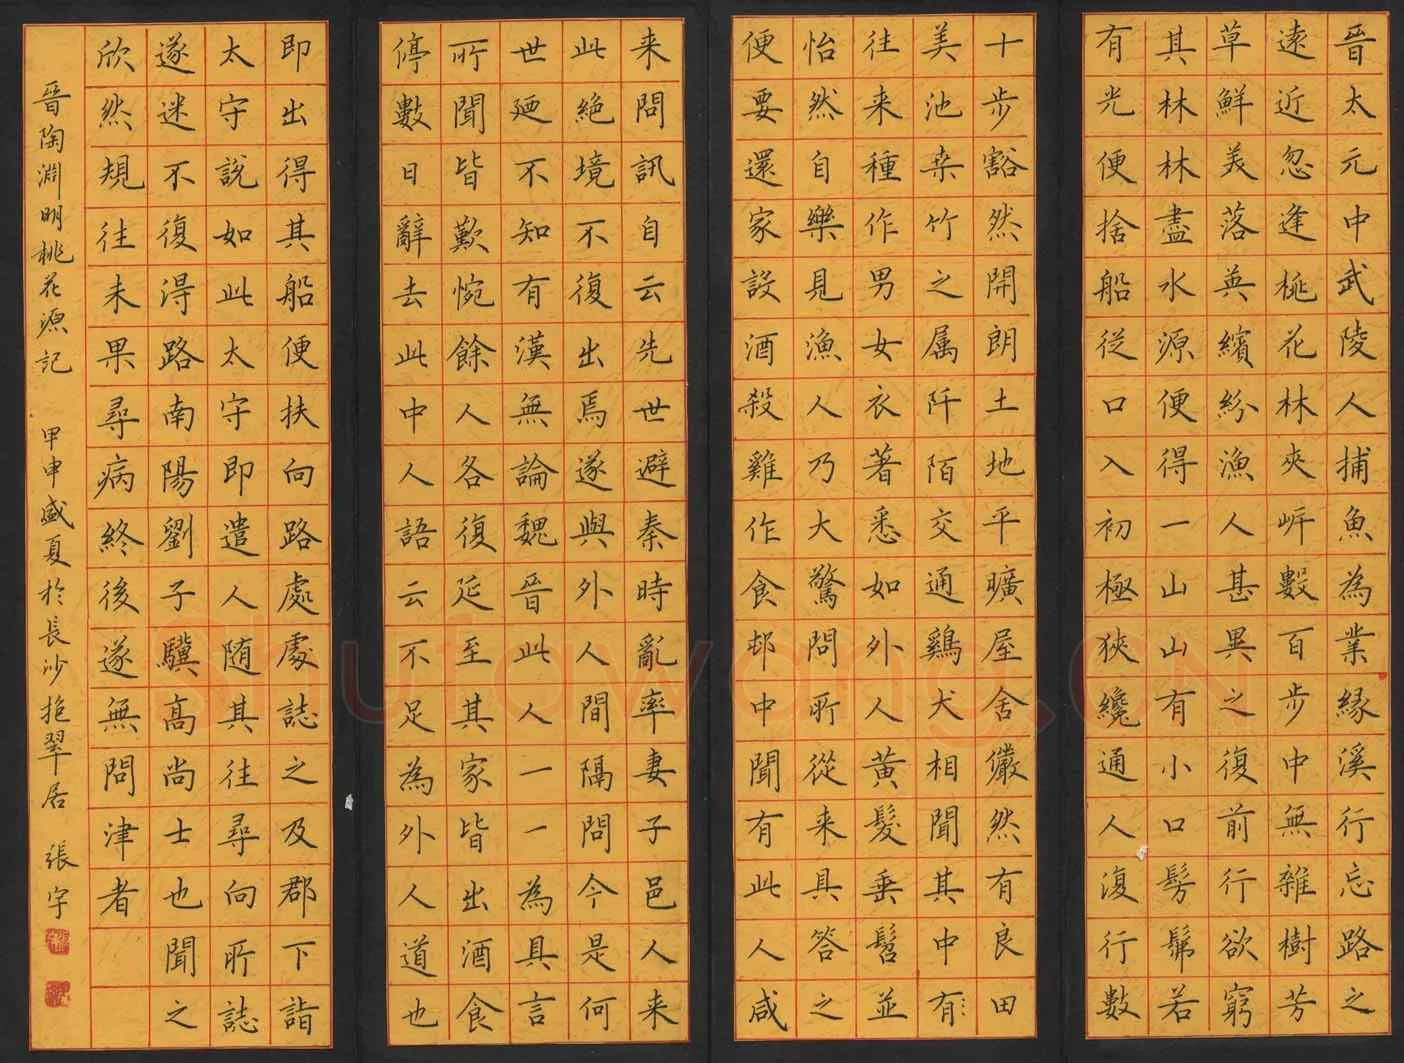 晉太元中武陵人捕魚為業緣溪行忘路之
遠近忽逢桃花林夾岍數百步中無雜樹芳
草鮮美落英繽紛漁人甚異之復前行欲窮
其林林盡水源便得一山山有小口髣髴若
有光便捨船從口入初極狹纔通人復行數
十步豁然開朗土地平曠屋舍儼然有良田
美池桒竹之属阡陌交通鷄犬相聞其中有
往来種作男女衣著悉如外人黄髮垂髫並
怡然自樂見漁人乃大驚問所從来具答之
便要還家設酒殺雞作食邨中聞有此人咸
来問訊自云先世避秦時亂率妻子邑人来
此絶境不復出焉遂與外人間隔問今是何
世廼不知有漢無論魏晉此人一一為具言
所聞皆歎惋餘人各復延至其家皆出酒食
停數日辭去此中人語云不足為外人道也
即出得其船便扶向路處處誌之及郡下詣
太守說如此太守即遣人随其往尋向所誌
遂迷不復得路南陽劉子驥高尚士也聞之
欣然規往未果尋病終後遂無問津者
晉陶淵明桃花源記 甲申盛夏於長沙挹翠居 張字
shufawang.cn